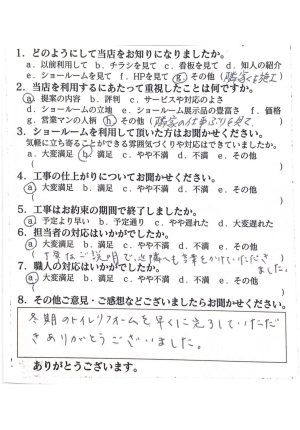 1. どのようにして当店をお知りになりましたか。
a. 以前利用して b. チラシを見て c. 看板を見て d. 知人の紹介
e. ショールームを見て f. HPを見て g. その他(隣家を施工)
2. 当店を利用するにあたって重視したことは何ですか。
a. 提案の内容 b. 評判 c. サービスや対応のよさ
d. ショールームの立地 e. ショールーム展示品の豊富さ f. 価格
g. 営業マンの人柄 h. その他(隣家の仕事ぶりを見て
3. ショールームを利用して頂いた方はお聞かせください。
気軽に立ち寄ることができる雰囲気づくりや対応はできていましたか。
a. 大変満足 b. 満足 c. やや不満 d. 不満 e. その他
(
4. 工事の仕上がりについてお聞かせください。
a. 大変満足 b. 満足 c. やや不満 d. 不満 e. その他
(
5. 工事はお約束の期間で終了しましたか。
a. 予定より早い b. 予定通り c. やや遅れた d. 大変遅れた
6. 担当者の対応はいかがでしたか。
a. 大変満足 b. 満足 c. やや不満 d. 不満 e. その他
(丁寧なご説明で、近隣へも言葉をかけていただきました。
7. 職人の対応はいかがでしたか。
a. 大変満足 b. 満足 c. やや不満 d. 不満 e. その他
(
8. その他ご意見・ご感想などございましたらお聞かせください。
冬期のトイレリフォームを早くに完了していただ
きありがとうございました。
ありがとうございます。